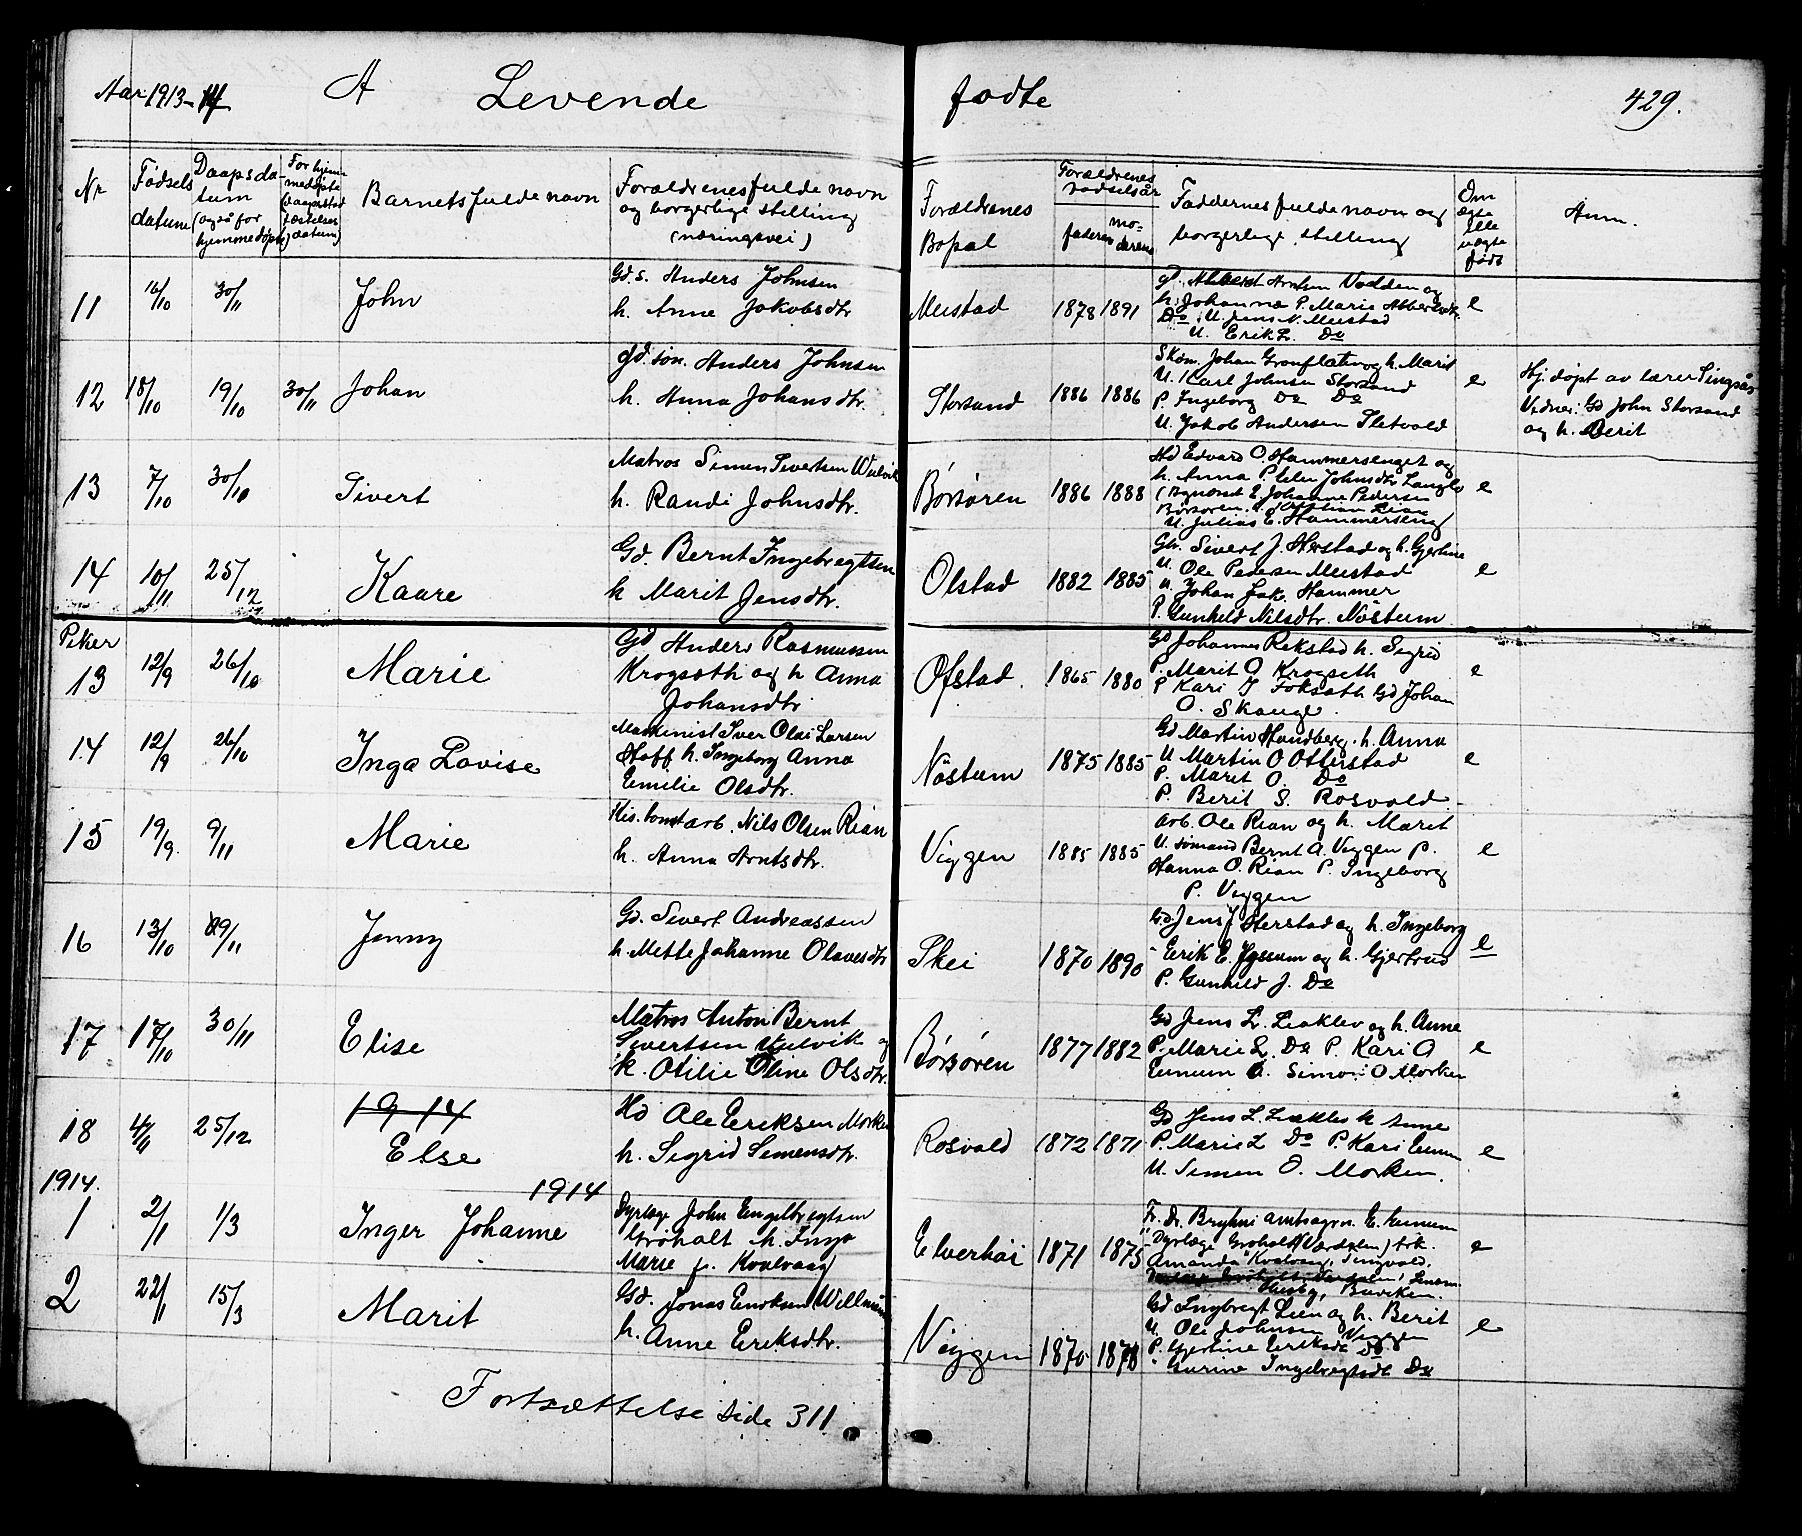 Aar 1913-14 A Levende fødte 429.
Nr
Fødsels datum
Daapsdatum (også for hjemmedøpte)
For hjemmedøpte (daapsstadfæstelses datum)
Barnets fulde navn
Forældrenes fulde navn og borgerlige stilling (næringsvei)
Forældrenes Bopæl
Forældrenes fødselsår
faderen
moderen
Faddernes fulde navn og borgerlige stilling
Om ægte elle uægte født
Anm.
11 16/10 30/11 John
Gd.s. Anders Johnsen
h. Anne Jakobsdtr
Meistad 1878 1891
h. Johanna P. Marie
Do, U. Jens N. Meistad
U. Erik L. Do
e
12 18/10 19/10 30/11 Johan
Gd.søn. Anders Johnsen
h. Anna Johansdtr.
Storsand 1886 1886
Skom. Johan Grønflaten og h. Marit
U. Karl Johnsen Storsand
P. Ingeborg Do Do
U. Jakob Andersen Sletvold
e
Hj. døpt av lærer Singsås
Vidner: Gd John Storsand
og h. Berit
13 7/10 30/10 Sivert
Matros Simen Sivertsen Viulvik
h. Randi Johnsdtr.
Børsøren 1886 1888
Hd Edvard O Hammersenget og
h. Anna P. Johnsdtr
E. Johanne Pedersen
Børsøren.
U. Julius E. Hammerseng
e
14 10/11 25/12 Kaare
Gd. Bernt Ingebregtsen
h Marit Jensdtr.
Olstad 1882 1885
Gbr. Sivert J. Herstad og h. Gjertine
U. Ole Pedersen Meistad
U. Johan Jak. Hammer
P. Gunhild Nilsdtr. Nøstum
e
Piker
13 12/9 26/10 Marie
Gd Anders Rasmussen
Krogsæth og h Anna
Johansdtr
Ofstad. 1865 1880
Gd Johannes Rekstad h. Sigrid
P. Marit O Krogseth
P Kari J Foksæth Gd Johan
O. Skauge.
e
14 12/9 26/10 Inga Lovise
Maskinist Iver Olai Larsen
Hoff h. Ingeborg Anna
Emilie Olsdtr.
Nøstum 1875 1885
Gd Martin Handberg. h. Anna
U Martin O Otterstad
P. Marit O. Do
P. Berit S. Rosvold
e
15 19/9. 9/11 Marie
arb. Nils Olsen Rian
h. Anna Arntsdtr.
Viggen 1885 1885
Arb. Ole Rian og h. Marit
U. sømand Bernt A. Viggen P.
Hanna O. Rian P. Ingeborg
P. Viggen
e
16 13/10 29/11 Jenny
Gd. Sivert Andreassen
h. Mette Johanne Olavesdtr
Skei 1870 1890
Gd. Jens J Herstad og h. Ingeborg
Erik E. Jyssum og h. Gjertrud
P. Gunhild J. Do
e
17 17/10 30/11 Elise
Matros Anton Bernt
Sivertsen Viulvik og
h. Otilie Oline Olsdtr.
Børsøren 1877 1882
Gd Jens L. Leaklev og h. Anne
P. Marie L. Do P. Kari O
Eunum U. Simon O Morken
e
18 4/11 25/12 1914
Else
Hd Ole Eriksen Morken
h. Sigrid Simensdtr.
Rosvald 1872 1871
Gd Jens L. Leaklev h Anne
P. Marie L Do P. Kari Eunum
U. Simon O. Morken.
e
1914. 1914
1 2/1 1/3 Inger Johanne
Dyrlæge John Engelbregtsen
Grøholt h. Inga
Marie f. Kvalvaag
Elverhøi 1871 1875
Fr. Dr. Bryhni amtsagron. E. Eunum
" Dyrlæge Grøholt (Værdalen) frk.
Amanda Kvalvaag,
Husby, Buviken.
e
2 22/1 15/3 Marit
Gd. Jonas Enoksen Willmann
h. Anne Eriksdtr.
Viggen 1870 1878
Gd Ingbregt Lien og h. Berit
U. Ole Johnsen Viggen
P. Gjertine Eriksdt Do
" Gurine Ingebregtsdt Do
e
Fortsættelse side 311